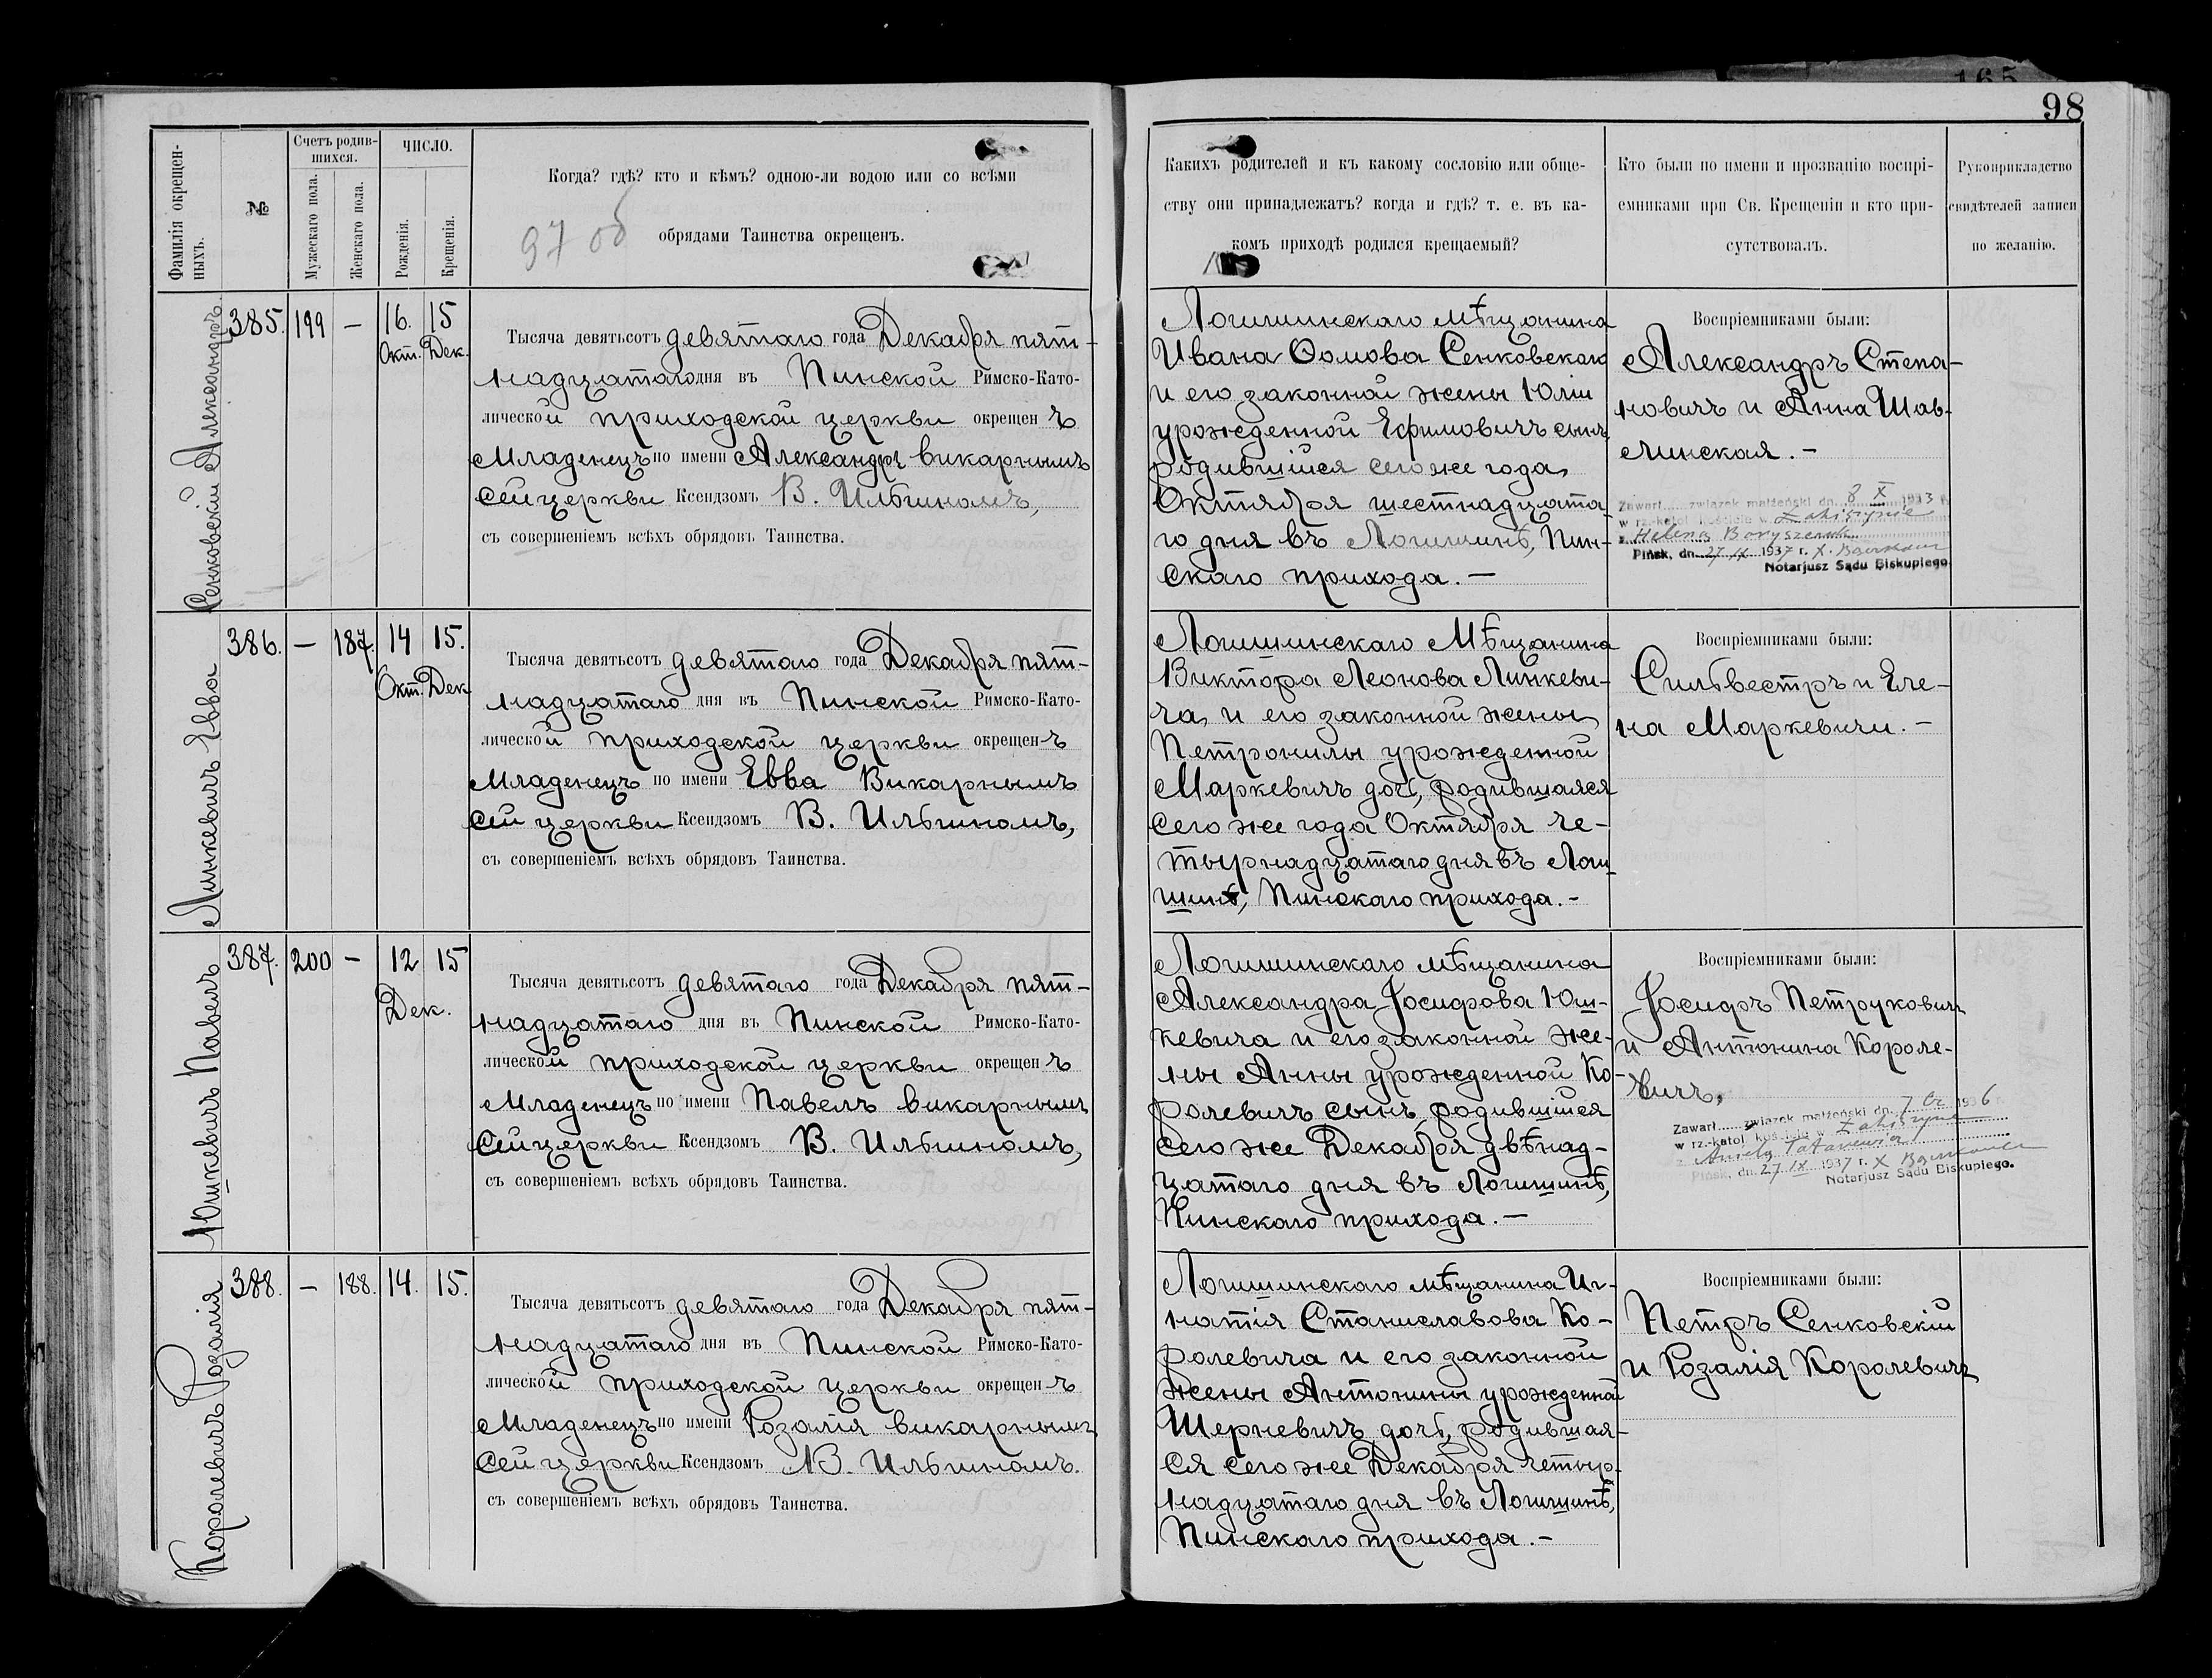 165
98
Фамилія окрещен-
ныхъ.
№
Счетъ родив-
шихся.
Мужескаго пола.
Женскаго пола.
ЧИСЛО.
Рожденія.
Крещенія.
Когда? гдѣ? кто и кѣмъ? одною-ли водою или со всѣми
обрядами Таинства окрещенъ.
97 об
Какихъ родителей и къ какому сословію или обще-
ству они принадлежатъ? когда и гдѣ? т. е. въ ка-
комъ приходѣ родился крещаемый?
Кто были по имени и прозванію воспрі-
емниками при Св. Крещеніи и кто при-
сутствовалъ.
Рукоприкладство
свидѣтелей записи
по желанію.
Сенковскій Александръ
385. 199 — 16. 15
Окт. Дек.
Тысяча девятьсотъ девятаго года Декабря пят-
надцатаго дня въ Пинской Римско-Като-
лической приходской церкви окрещенъ
Младенецъ по имени Александръ викарнымъ
сей церкви Ксендзомъ В. Ильгиномъ,
съ совершеніемъ всѣхъ обрядовъ Таинства.
Логишинскаго мѣщанина
Ивана Ѳомова Сенковскаго
и его законной жены Юліи
урожденной Ефимовичъ сынъ,
родившійся сего же года
Октября шестнадцата-
го дня въ Логишинѣ, Пин-
скаго прихода. —
Воспріемниками были:
Александръ Степа-
новичъ и Анна Шав-
линская. —
Zawarł związek małżeński dn. 8 X 1933
w rz.-katol. kościele w Łohiszynie
z Helena
Pińsk, dn. 27 IX 1937 r. X.
Notarjusz Sądu Biskupiego
Линкевичъ Евва
386. — 187. 14 15.
Окт. Дек
Тысяча девятьсотъ девятаго года Декабря пят-
надцатаго дня въ Пинской Римско-Като-
лической приходской церкви окрещенъ
Младенецъ по имени Евва Викарнымъ
сей церкви Ксендзомъ В. Ильгиномъ,
съ совершеніемъ всѣхъ обрядовъ Таинства.
Логишинскаго Мѣщанина
Виктора Леонова Линкеви-
ча, и его законной жены
Петронилы урожденной
Маркевичъ дочь, родившаяся
сего же года Октября че-
тырнадцатаго дня въ Логи-
шинѣ, Пинскаго прихода. —
Воспріемниками были:
Сильвестръ и Еле-
на Маркевичи. —
Юшкевичъ Павелъ
387. 200 — 12 15
Дек.
Тысяча девятьсотъ девятаго года Декабря пят-
надцатаго дня въ Пинской Римско-Като-
лической приходской церкви окрещенъ
Младенецъ по имени Павелъ викарнымъ
сей церкви Ксендзомъ В. Ильгиномъ,
съ совершеніемъ всѣхъ обрядовъ Таинства.
Логишинскаго мѣщанина
Александра Іосифова Юш-
кевича и его законной же-
ны Анны урожденной Ко-
ролевичъ сынъ, родившійся
сего же Декабря двѣнад-
цатаго дня въ Логишинѣ,
Пинскаго прихода. —
Воспріемниками были:
Іосифъ Петруковичъ
и Антонина Короле-
вичъ,
Zawarł związek małżeński dn. 7 1936
w rz.-katol. kościele w Łohiszynie
z Aniela
Pińsk, dn. 27 IX 1937 r. X
Notarjusz Sądu Biskupiego.
Королевичъ Розалія
388. — 188. 14. 15.
Тысяча девятьсотъ девятаго года Декабря пят-
надцатаго дня въ Пинской Римско-Като-
лической приходской церкви окрещенъ
Младенецъ по имени Розалія викарнымъ
сей церкви Ксендзомъ В. Ильгиномъ.
съ совершеніемъ всѣхъ обрядовъ Таинства.
Логишинскаго мѣщанина Иг-
натія Станиславова Ко-
ролевича и его законной
жены Антонины урожденной
Шерневичъ дочь, родившая-
ся сего же Декабря четыр-
надцатаго дня въ Логишинѣ,
Пинскаго прихода. —
Воспріемниками были:
Петръ Сенковскій
и Розалія Королевичъ